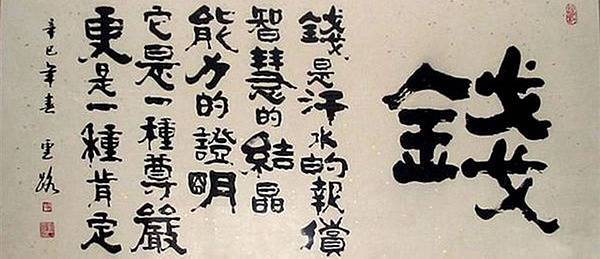 錢
錢是汗水的報償
智慧的結晶
能力的證明
它是一種尊嚴
更是一種肯定
辛巳年春
路